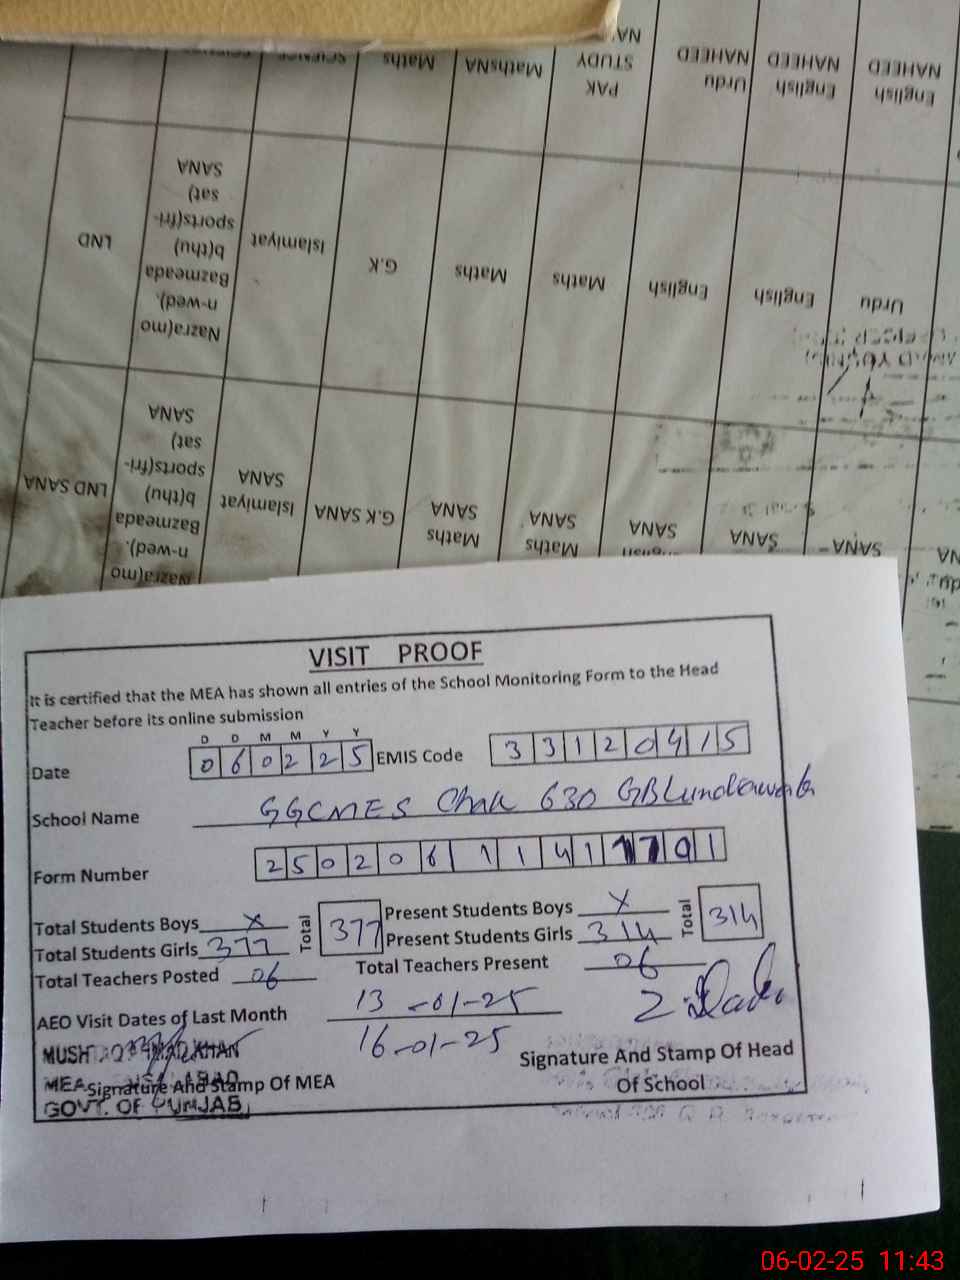 NA
NAHEED English
NAHEED English
NAHEED Urdu
NA
STUDY
PAK
MathsNA
Maths
SCIENCE
LND
Nazra(mo
n-wed),
Bazmeada
b(thu)
sports(fri-
sat)
SANA
Islamiyat
G.K
Maths
Maths
English
English
Urdu
LND SANA
Nazra(mo
n-wed),
Bazmeada
b(thu)
sports(fri-
sat)
SANA
Islamiyat
SANA
G.K SANA
Maths
SANA
Maths
SANA
SANA
SANA
SANA
VISIT PROOF
It is certified that the MEA has shown all entries of the School Monitoring Form to the Head
Teacher before its online submission
D D M M Y Y
Date 060225 EMIS Code 33120415
School Name GGCMES Chak 630 GB
Form Number 25020611411701
Total Students Boys X Total 377 Present Students Boys X Total 314
Total Students Girls 377 Present Students Girls 314
Total Teachers Posted 06 Total Teachers Present 06
AEO Visit Dates of Last Month 13-01-25
16-01-25
MUSH KHAN
MEA
Signature And Stamp Of MEA
GOVT. OF PUNJAB
Signature And Stamp Of Head
Of School
06-02-25 11:43